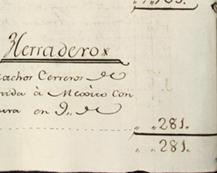 Herradero
achos Cerreros de
rida à Mexico con
ura en 9. de
281.
281.